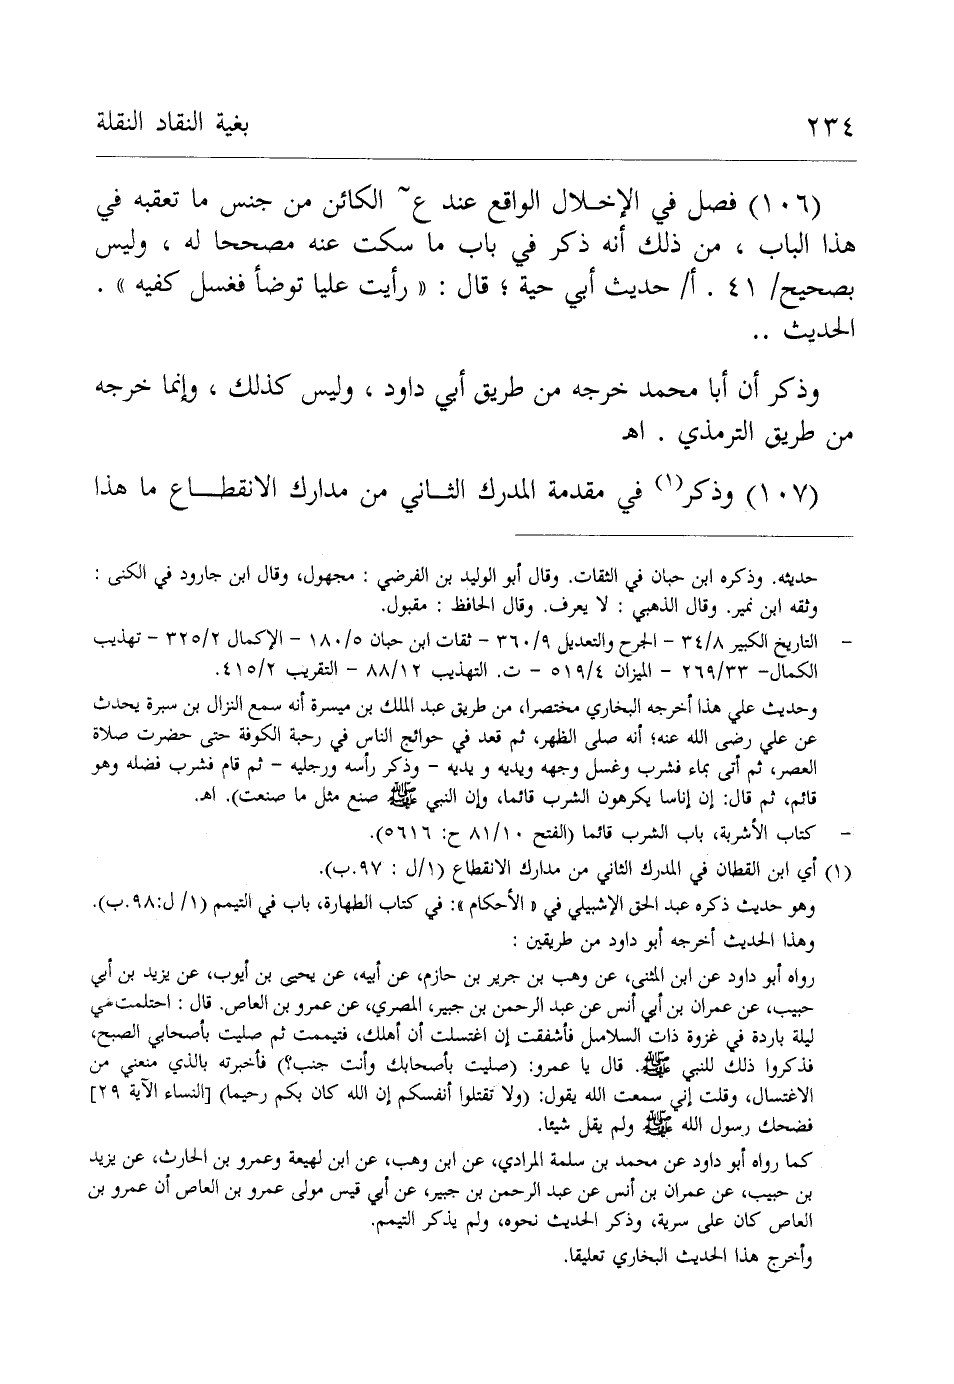 ٢٣٤ بغية النقاد النقلة
(١٠٦) فصل في الإخلال الواقع عند ع~ الكائن من جنس ما تعقبه في
هذا الباب ، من ذلك أنه ذكر في باب ما سكت عنه مصححا له ، وليس
بصحيح/ ٤١ . أ/ حديث أبي حية ؛ قال : « رأيت عليا توضأ فغسل كفيه » .
الحديث ..
وذكر أن أبا محمد خرجه من طريق أبي داود ، وليس كذلك ، وإنما خرجه
من طريق الترمذي . اهـ
(١٠٧) وذكر(١) في مقدمة المدرك الثاني من مدارك الانقطاع ما هذا
حديثه. وذكره ابن حبان في الثقات. وقال أبو الوليد بن الفرضي : مجهول، وقال ابن جارود في الكنى :
وثقه ابن نمير. وقال الذهبي : لا يعرف. وقال الحافظ : مقبول.
- التاريخ الكبير ٣٤/٨ - الجرح والتعديل ٣٦٠/٩ - ثقات ابن حبان ١٨٠/٥ - الإكمال ٣٢٥/٢ - تهذيب
الكمال- ٢٦٩/٣٣ - الميزان ٥١٩/٤ - ت. التهذيب ٨٨/١٢ - التقريب ٤١٥/٢.
وحديث علي هذا أخرجه البخاري مختصرا، من طريق عبد الملك بن ميسرة أنه سمع النزال بن سبرة يحدث
عن علي رضى الله عنه؛ أنه صلى الظهر، ثم قعد في حوائج الناس في رحبة الكوفة حتى حضرت صلاة
العصر، ثم أتى بماء فشرب وغسل وجهه ويديه و يديه - وذكر رأسه ورجليه - ثم قام فشرب فضله وهو
قائم، ثم قال: إن إناسا يكرهون الشرب قائما، وإن النبي ﷺ صنع مثل ما صنعت). اهـ.
- كتاب الأشربة، باب الشرب قائما (الفتح ٨١/١٠ ح: ٥٦١٦).
(١) أي ابن القطان في المدرك الثاني من مدارك الانقطاع (١/ل : ٩٧.ب).
وهو حديث ذكره عبد الحق الإشبيلي في « الأحكام »: في كتاب الطهارة، باب في التيمم (١/ ل:٩٨.ب).
وهذا الحديث أخرجه أبو داود من طريقين :
رواه أبو داود عن ابن المثنى، عن وهب بن جرير بن حازم، عن أبيه، عن يحيى بن أيوب، عن يزيد بن أبي
حبيب، عن عمران بن أبي أنس عن عبد الرحمن بن جبير، المصري، عن عمرو بن العاص. قال : احتلمت في
ليلة باردة في غزوة ذات السلاسل فأشفقت إن اغتسلت أن أهلك، فتيممت ثم صليت بأصحابي الصبح،
فذكروا ذلك للنبي ﷺ. قال يا عمرو: (صليت بأصحابك وأنت جنب؟) فأخبرته بالذي منعني من
الاغتسال، وقلت إني سمعت الله يقول: (ولا تقتلوا أنفسكم إن الله كان بكم رحيما) [النساء الآية ٢٩]
فضحك رسول الله ﷺ ولم يقل شيئا.
كما رواه أبو داود عن محمد بن سلمة المرادي، عن ابن وهب، عن ابن لهيعة وعمرو بن الحارث، عن يزيد
بن حبيب، عن عمران بن أنس عن عبد الرحمن بن جبير، عن أبي قيس مولى عمرو بن العاص أن عمرو بن
العاص كان على سرية، وذكر الحديث نحوه، ولم يذكر التيمم.
وأخرج هذا الحديث البخاري تعليقا.